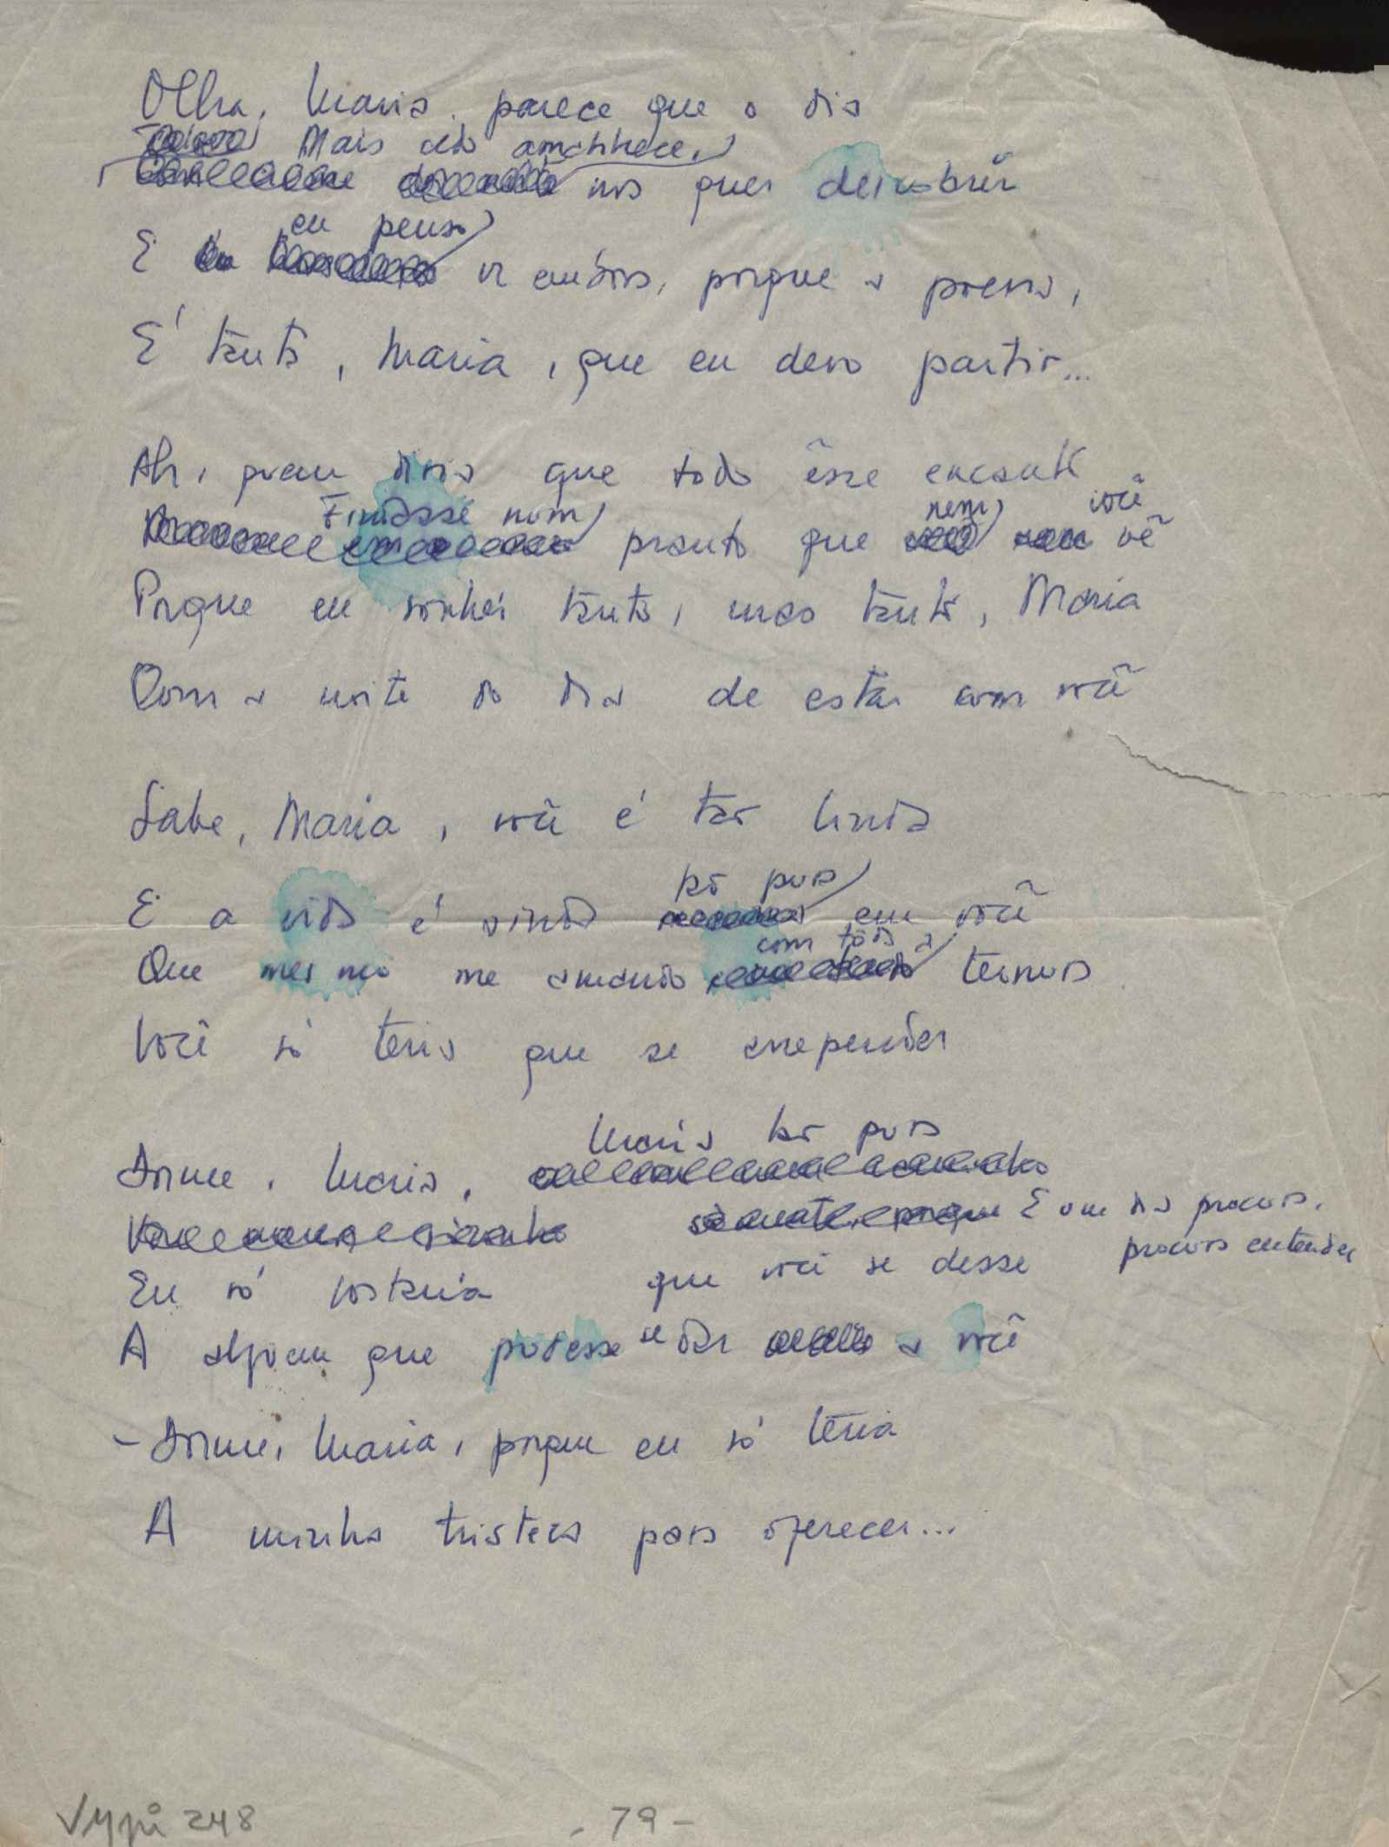 Olha, Maria, parece que o dia
Mais cedo amanhece,
nos quer descobrir
E eu penso
ir embora, porque a poesia,
É tanta, Maria, que eu devo partir...
Ah, quem diria que todo êsse encanto
Findasse num nem você
pranto que vê
Porque eu sonhei tanto, mas tanto, Maria
Com a noite do dia de estar com você
Sabe, Maria, você é tão linda
E a vida é ainda tão pura em você
Que mesmo me amando com tôda a ternura
Você só teria que se arrepender
Maria tão pura
Dorme, Maria,
E um dia procura,
procura entender
Eu só gostaria que você se desse
A alguem que pudesse se dar a você
- Dorme, Maria, porque eu só teria
A minha tristeza para oferecer...
248
- 79 -